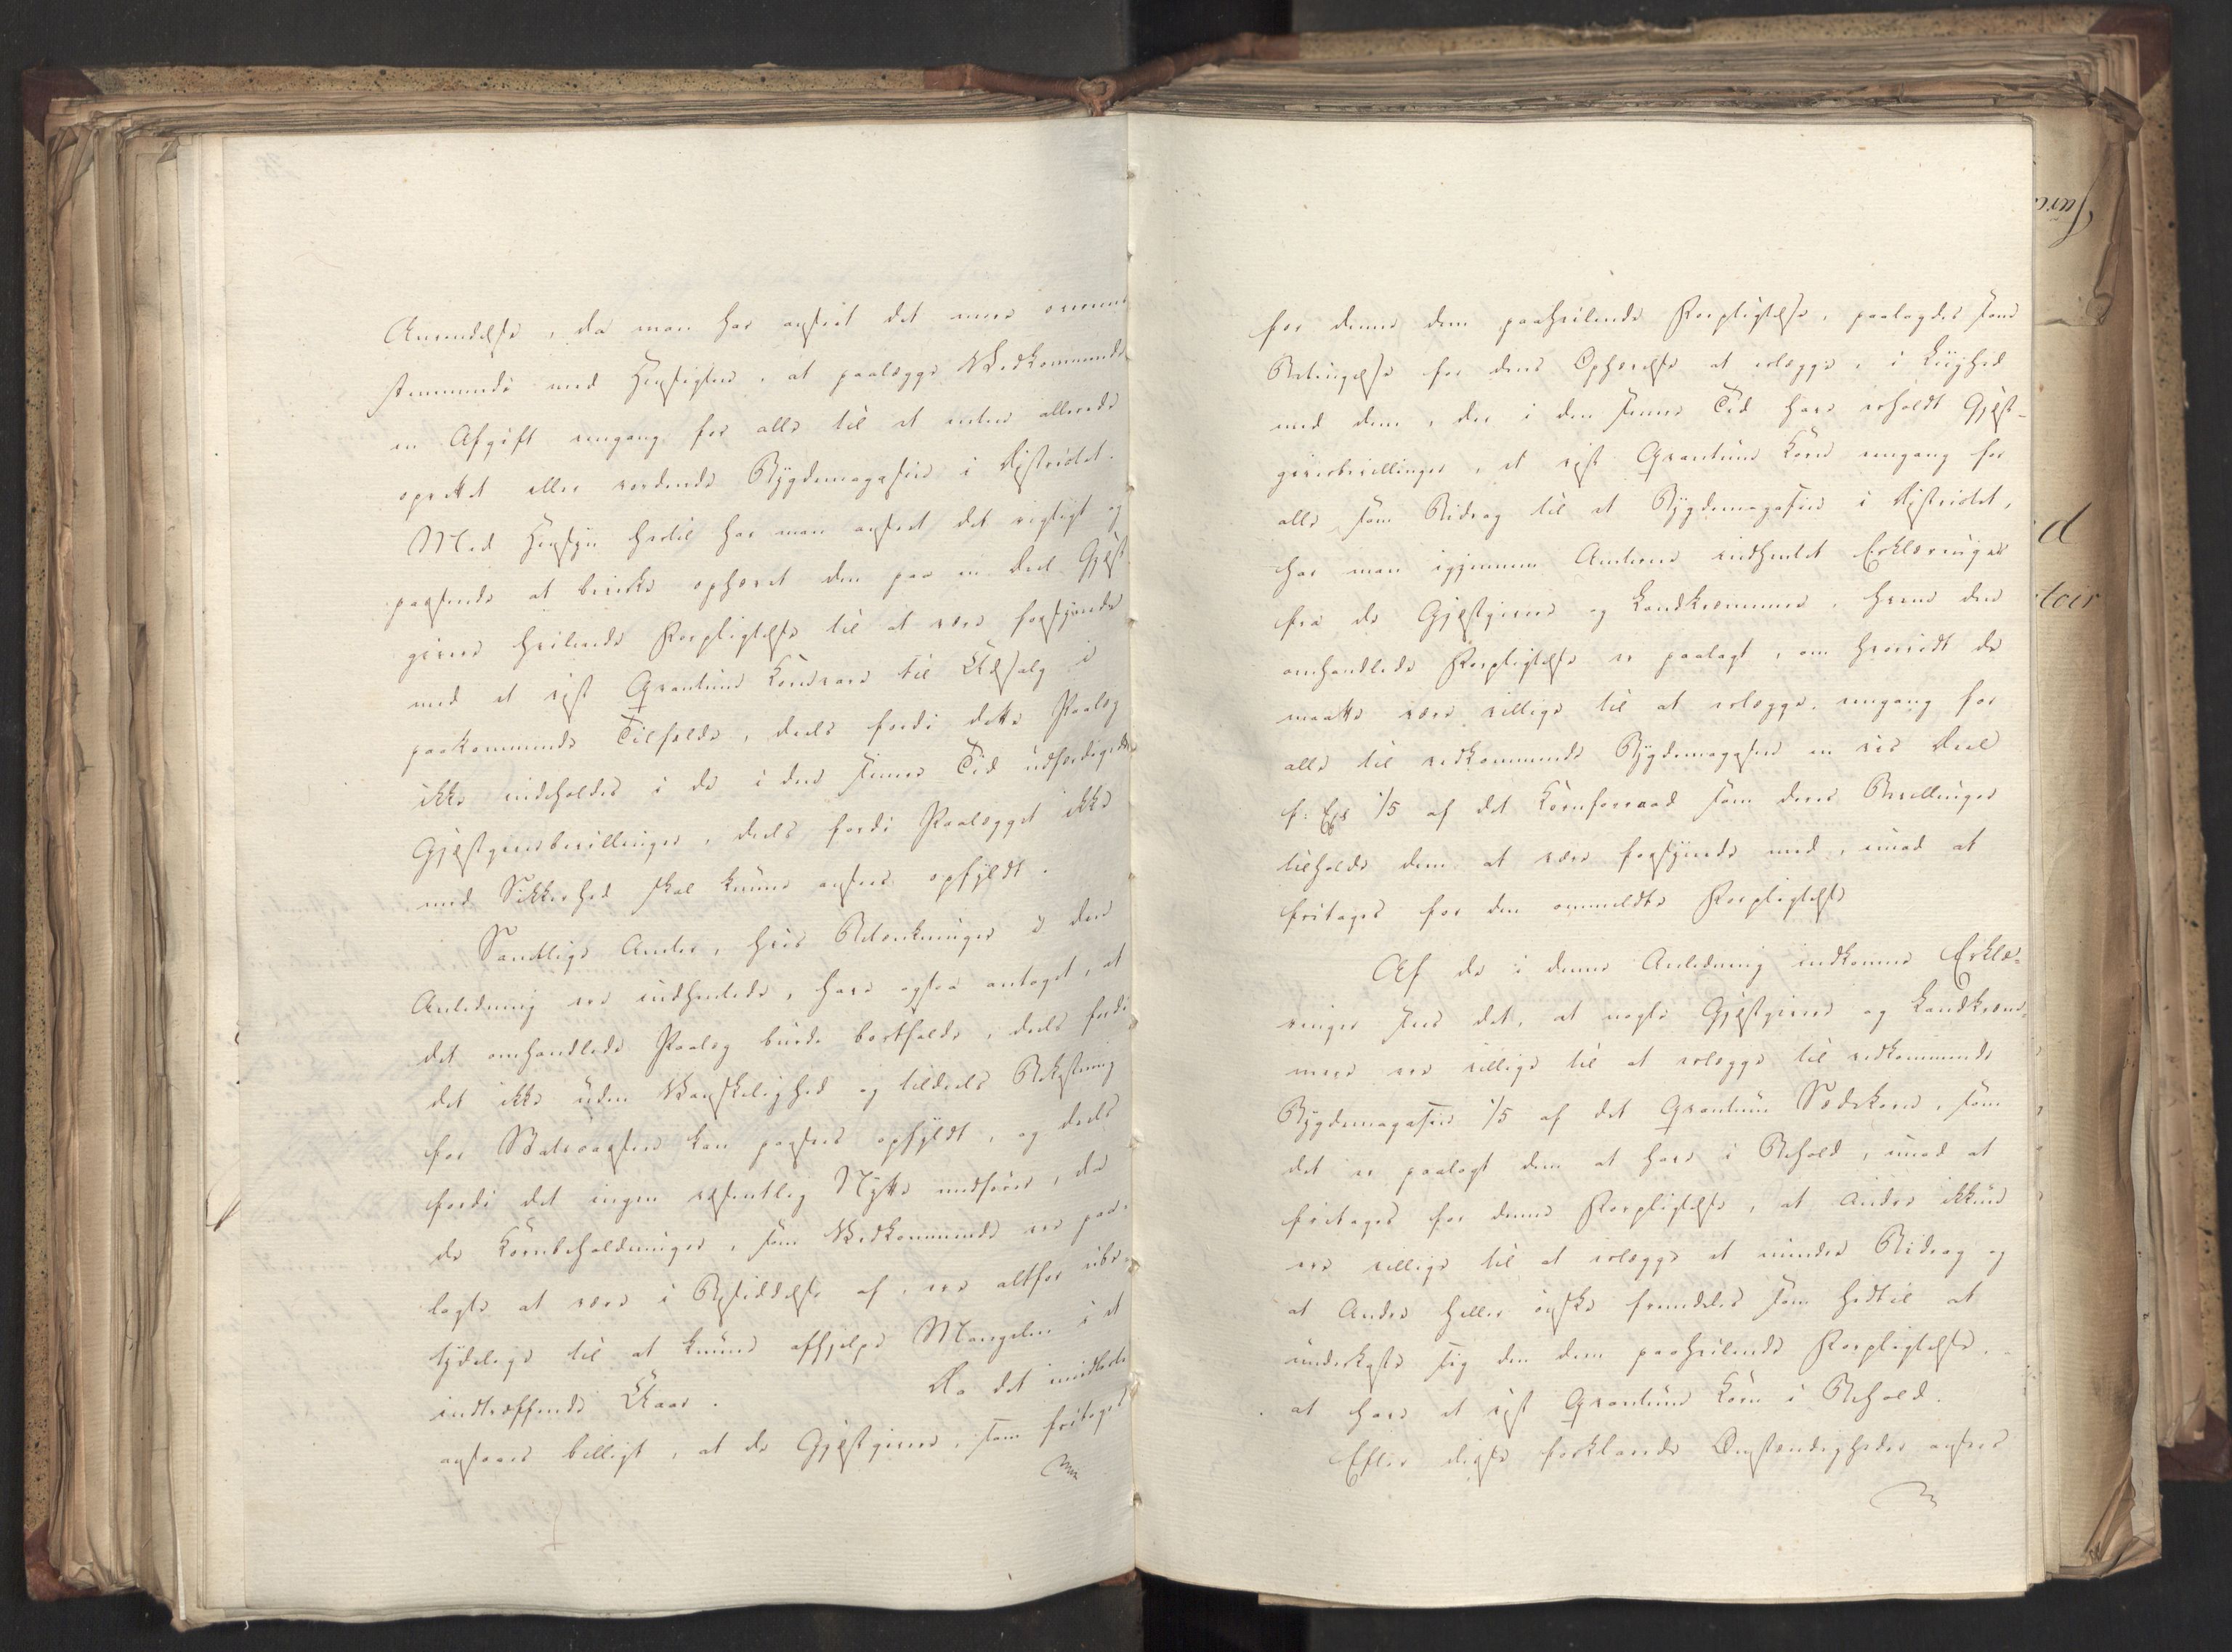 Anvendelse, da man har anseet det mere overeens
stemmende med Hensigten, at paalægge Vedkommende
en Afgift eengang for alle til et enten allerede
oprettet eller vordende Bygdemagasin i Districtet.
Med Hensyn hertil har man anseet det rigtigt og
passende at bevirke ophævet den paa en Deel Gjæst
givere hvilende Forpligtelse til at være forsynede
med et vist Qvantum Kornvare til Udsalg i
paakommende Tilfælde, deels fordi dette Paalæg
ikke indeholdes i de i den senere Tid udfærdigede
Gjæstgiverbevillinger, deels fordi Paalægget ikke
med Sikkerhed skal kunne ansees opfyldt.
Samtlige Amter, hvis Betænkninger i den
Anledning ere indhentede, have ogsaa antaget, at
det omhandlede Paalæg burde bortfalde, deels fordi
det ikke uden Vanskelighed og tildeels Bekostning
for Statscassen kan paasees opfyldt, og deels
fordi det ingen væsentlig Nytte medfører, da
de Kornbeholdninger, som Vedkommende ere paa-
lagte at være i Besiddelse af, ere altfor ube-
tydelige til at kunne afhjelpe Mangelen i et
indtræffende Uaar.
Da det imidlertid
ansaaes billigt, at de Gjæstgivere, som fritages
for denne dem paahvilende Forpligtelse, paalagdes som
Betingelse for dens Ophævelse at erlægge, i Liighed
med dem, der i den senere Tid have erholdt Gjæst-
giverbevillinger, et vist Qvantum Korn eengang for
alle som Bidrag til et Bygdemagasin i Districtet,
har man igjennem Amterne indhentet Erklæringer
fra de Gjæstgivere og Landkræmmere, hvem den
omhandlede Forpligtelse er paalagt, om hvorvidt de
maatte være villige til at erlægge, eengang for
alle til vedkommende Bygdemagasin en vis Deel
f: Ex 1/5 af det Kornforraad som deres Bevillinger
tilholde dem at være forsynede med, imod at
fritages for den ommeldte Forpligtelse
Af de i denne Anledning indkomne Erklæ-
ringer sees det, at nogle Gjæstgivere og Landkræm-
mere ere villige til at erlægge til vedkommende
Bygdemagasin 1/5 af det Qvantum Sædekorn, som
det er paalagt dem at have i Behold, imod at
fritages for denne Forpligtelse, at Andre ikkun
ere villige til at erlægge et mindre Bidrag og
at Andre heller ønske fremdeles som hidtil at
underkaste sig den dem paahvilende Forpligtelse,
at have et vist Qvantum Korn i Behold.
Efter disse forklarede Omstændigheder ansees